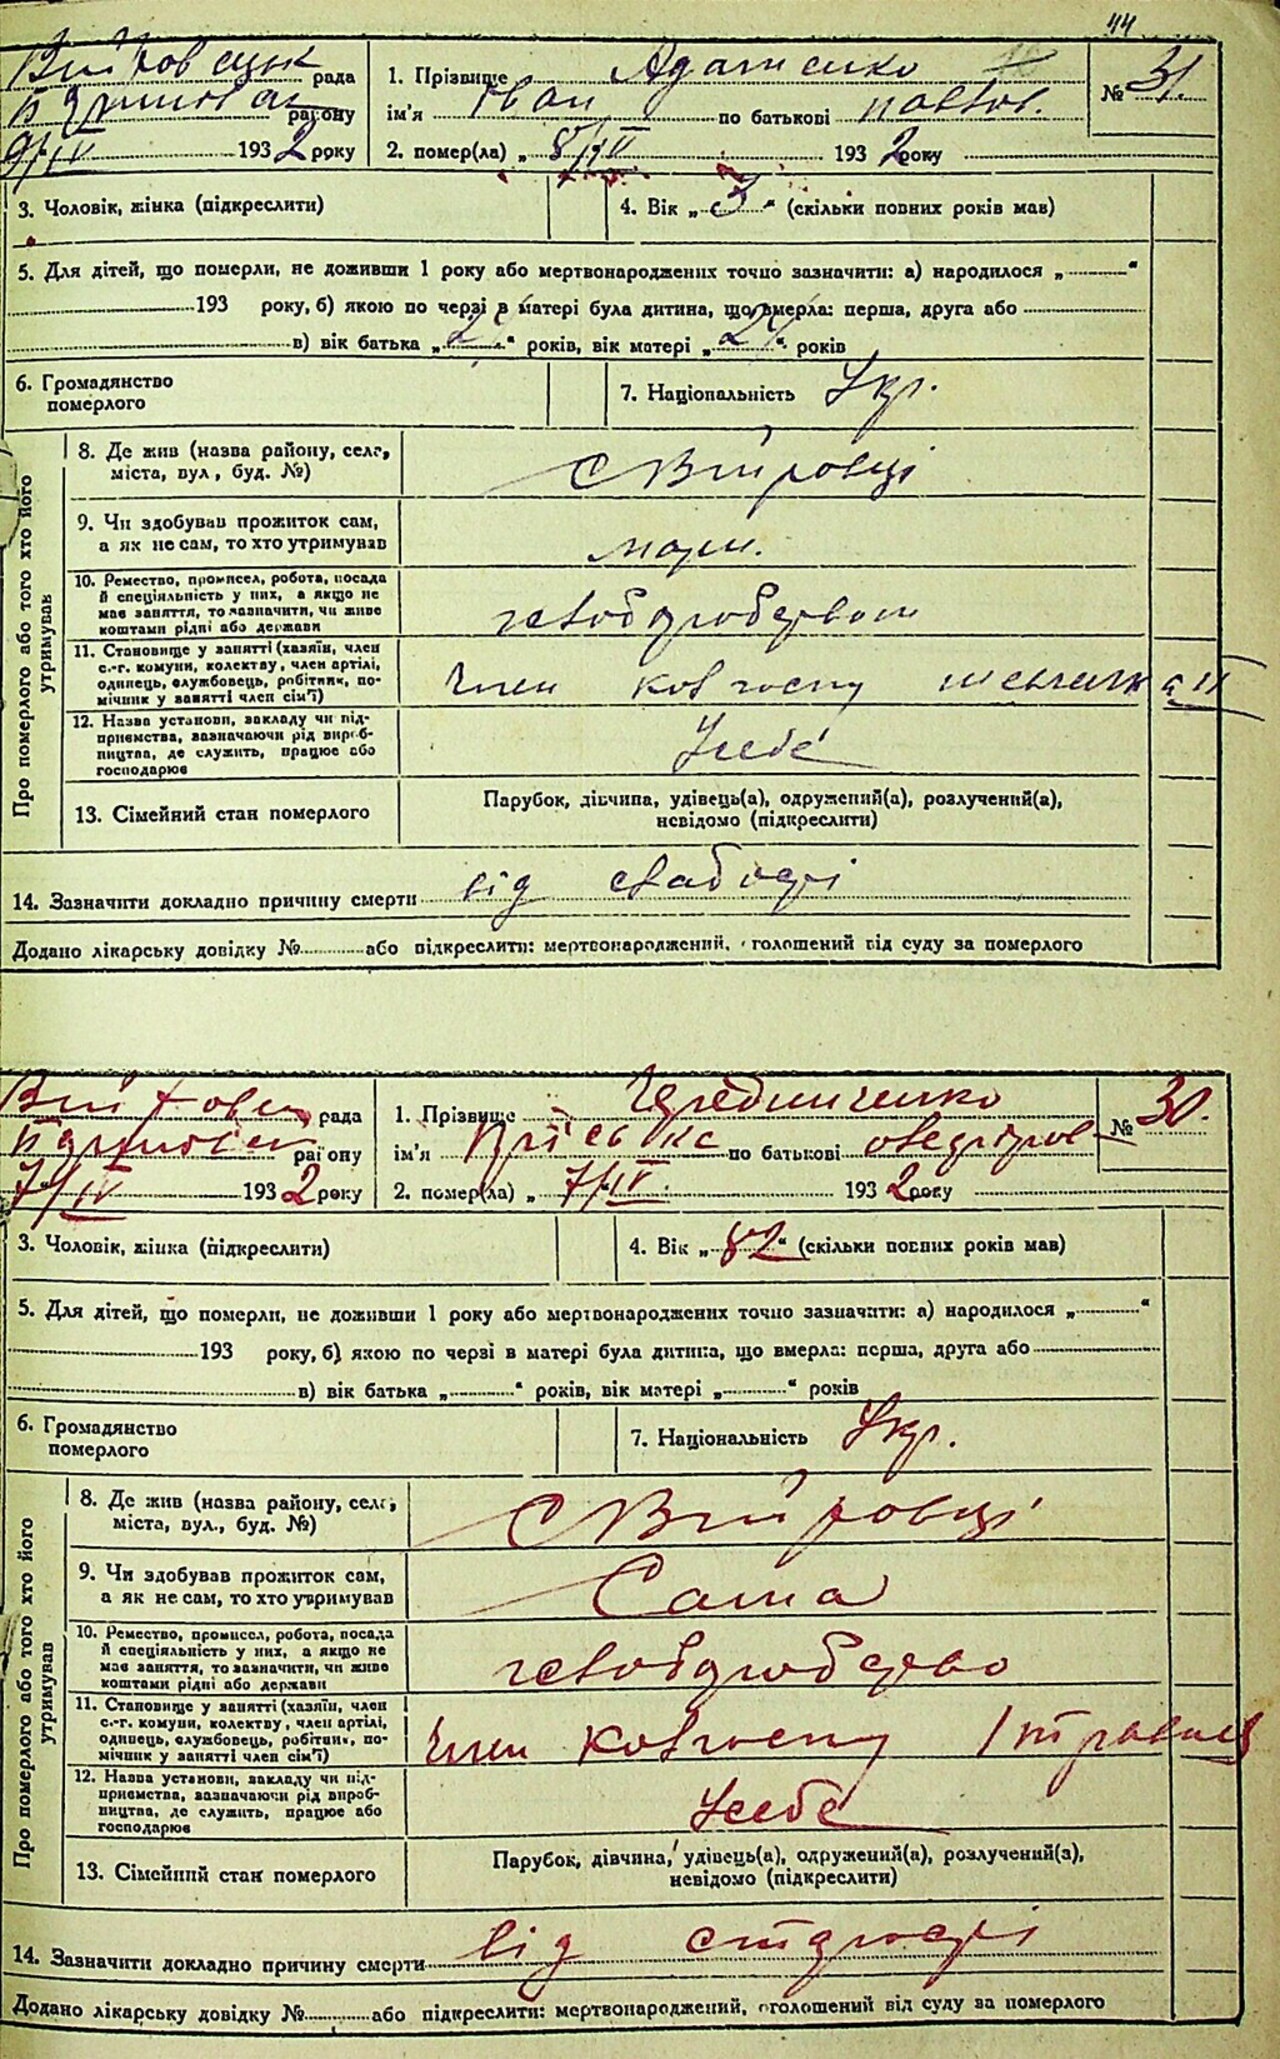 44
Війтовецьк рада
району
9/IV 1932 року
1. Прізвище Адаменко
ім'я Іван по батькові Павлов.
№ 31.
2. помер(ла) „ 8/IV 1932 року
3. Чоловік, жінка (підкреслити)
4. Вік „ 3 “ (скільки повних років мав)
5. Для дітей, що померли, не доживши 1 року або мертвонароджених точно зазначити: а) народилося „ “
193 року, б) якою по черзі в матері була дитина, що вмерла: перша, друга або
в) вік батька „ “ років, вік матері „ 24 “ років
6. Громадянство
померлого
7. Національність Укр.
Про померлого або того хто його
утримував
8. Де жив (назва району, села,
міста, вул., буд. №)
с Війтовці
9. Чи здобував прожиток сам,
а як не сам, то хто утримував
10. Ремество, промисел, робота, посада
й спеціяльність у них, а якщо не
має заняття, то зазначити, чи живе
коштами рідні або держави
11. Становище у занятті (хазяїн, член
с.-г. комуни, колектву, член артілі,
одинець, службовець, робітник, по-
мічник у занятті член сім'ї)
Член колгоспу
12. Назва установи, закладу чи під-
приємства, зазначаючи рід вироб-
ництва, де служить, працює або
господарює
У себе
13. Сімейний стан померлого
Парубок, дівчина, удівець(а), одружений(а), розлучений(а),
невідомо (підкреслити)
14. Зазначити докладно причину смерти від слабості
Додано лікарську довідку № або підкреслити: мертвонароджений, оголошений від суду за померлого
Війтовец рада
району
7/IV 1932 року
1. Прізвище Чередниченко
ім'я Пріська по батькові
№ 30.
2. помер(ла) „ 7/IV. 1932 року
3. Чоловік, жінка (підкреслити)
4. Вік „ 82 “ (скільки повних років мав)
5. Для дітей, що померли, не доживши 1 року або мертвонароджених точно зазначити: а) народилося „ “
193 року, б) якою по черзі в матері була дитина, що вмерла: перша, друга або
в) вік батька „ “ років, вік матері „ “ років
6. Громадянство
померлого
7. Національність Укр.
Про померлого або того хто його
утримував
8. Де жив (назва району, села,
міста, вул., буд. №)
с Війтовці
9. Чи здобував прожиток сам,
а як не сам, то хто утримував
Сама
10. Ремество, промисел, робота, посада
й спеціяльність у них, а якщо не
має заняття, то зазначити, чи живе
коштами рідні або держави
хліборобство
11. Становище у занятті (хазяїн, член
с.-г. комуни, колектву, член артілі,
одинець, службовець, робітник, по-
мічник у занятті член сім'ї)
Член колгоспу 1 травня
12. Назва установи, закладу чи під-
приємства, зазначаючи рід вироб-
ництва, де служить, працює або
господарює
У себе
13. Сімейний стан померлого
Парубок, дівчина, удівець(а), одружений(а), розлучений(а),
невідомо (підкреслити)
14. Зазначити докладно причину смерти від старості
Додано лікарську довідку № або підкреслити: мертвонароджений, оголошений від суду за померлого